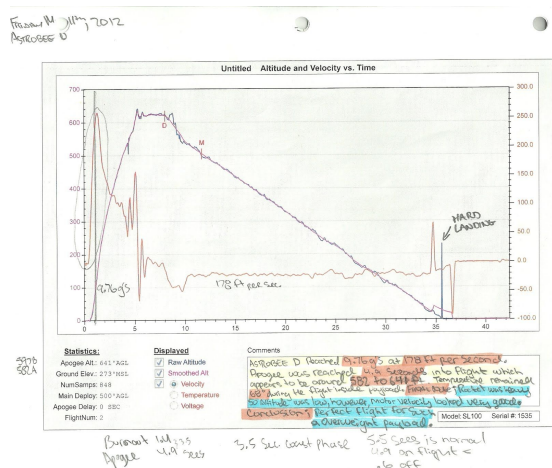 2012
ASTROBEE D
Untitled Altitude and Velocity vs. Time
700 300.0
600 250.0
500 200.0
400 150.0
300 100.0
200 50.0
100 0.0
0 -50.0
-100.0
D
M
HARD
LANDING
9.76 g's
178 ft per sec.
0 5 10 15 20 25 30 35 40
Statistics:
Apogee Alt.: 641'AGL
Ground Elev.: 273'MSL
NumSamps: 848
Main Deploy: 500'AGL
Apogee Delay: 0 SEC
FlightNum: 2
Displayed
Raw Altitude
Smoothed Alt
Velocity
Temperature
Voltage
Comments
ASTROBEE D Reached 9.76 g's at 178 ft per second.
Apogee was reached 4.9 seconds into flight which
appears to be around 582 to 641 ft. Temperature remained
68° during the flight inside payload. Rocket was heavy
so altitude was low, however motor velocity looked very good.
Conclusion: Perfect flight for such
a overweight payload.
Model: SL100 Serial #: 1535
582
Burnout
Apogee 4.9 secs
3.5 sec. coast phase
5.5 secs is normal
4.9 on flight =
.6 off